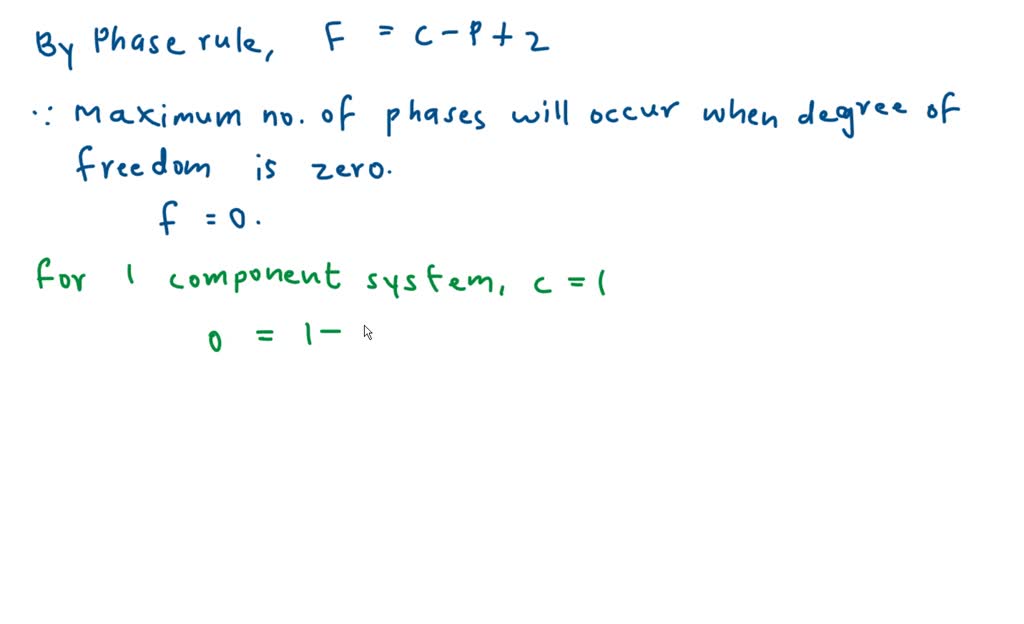 By Phase rule, F = C - P + 2
∵ Maximum no. of phases will occur when degree of
freedom is zero.
f = 0.
for 1 component system, c = 1
0 = 1 -